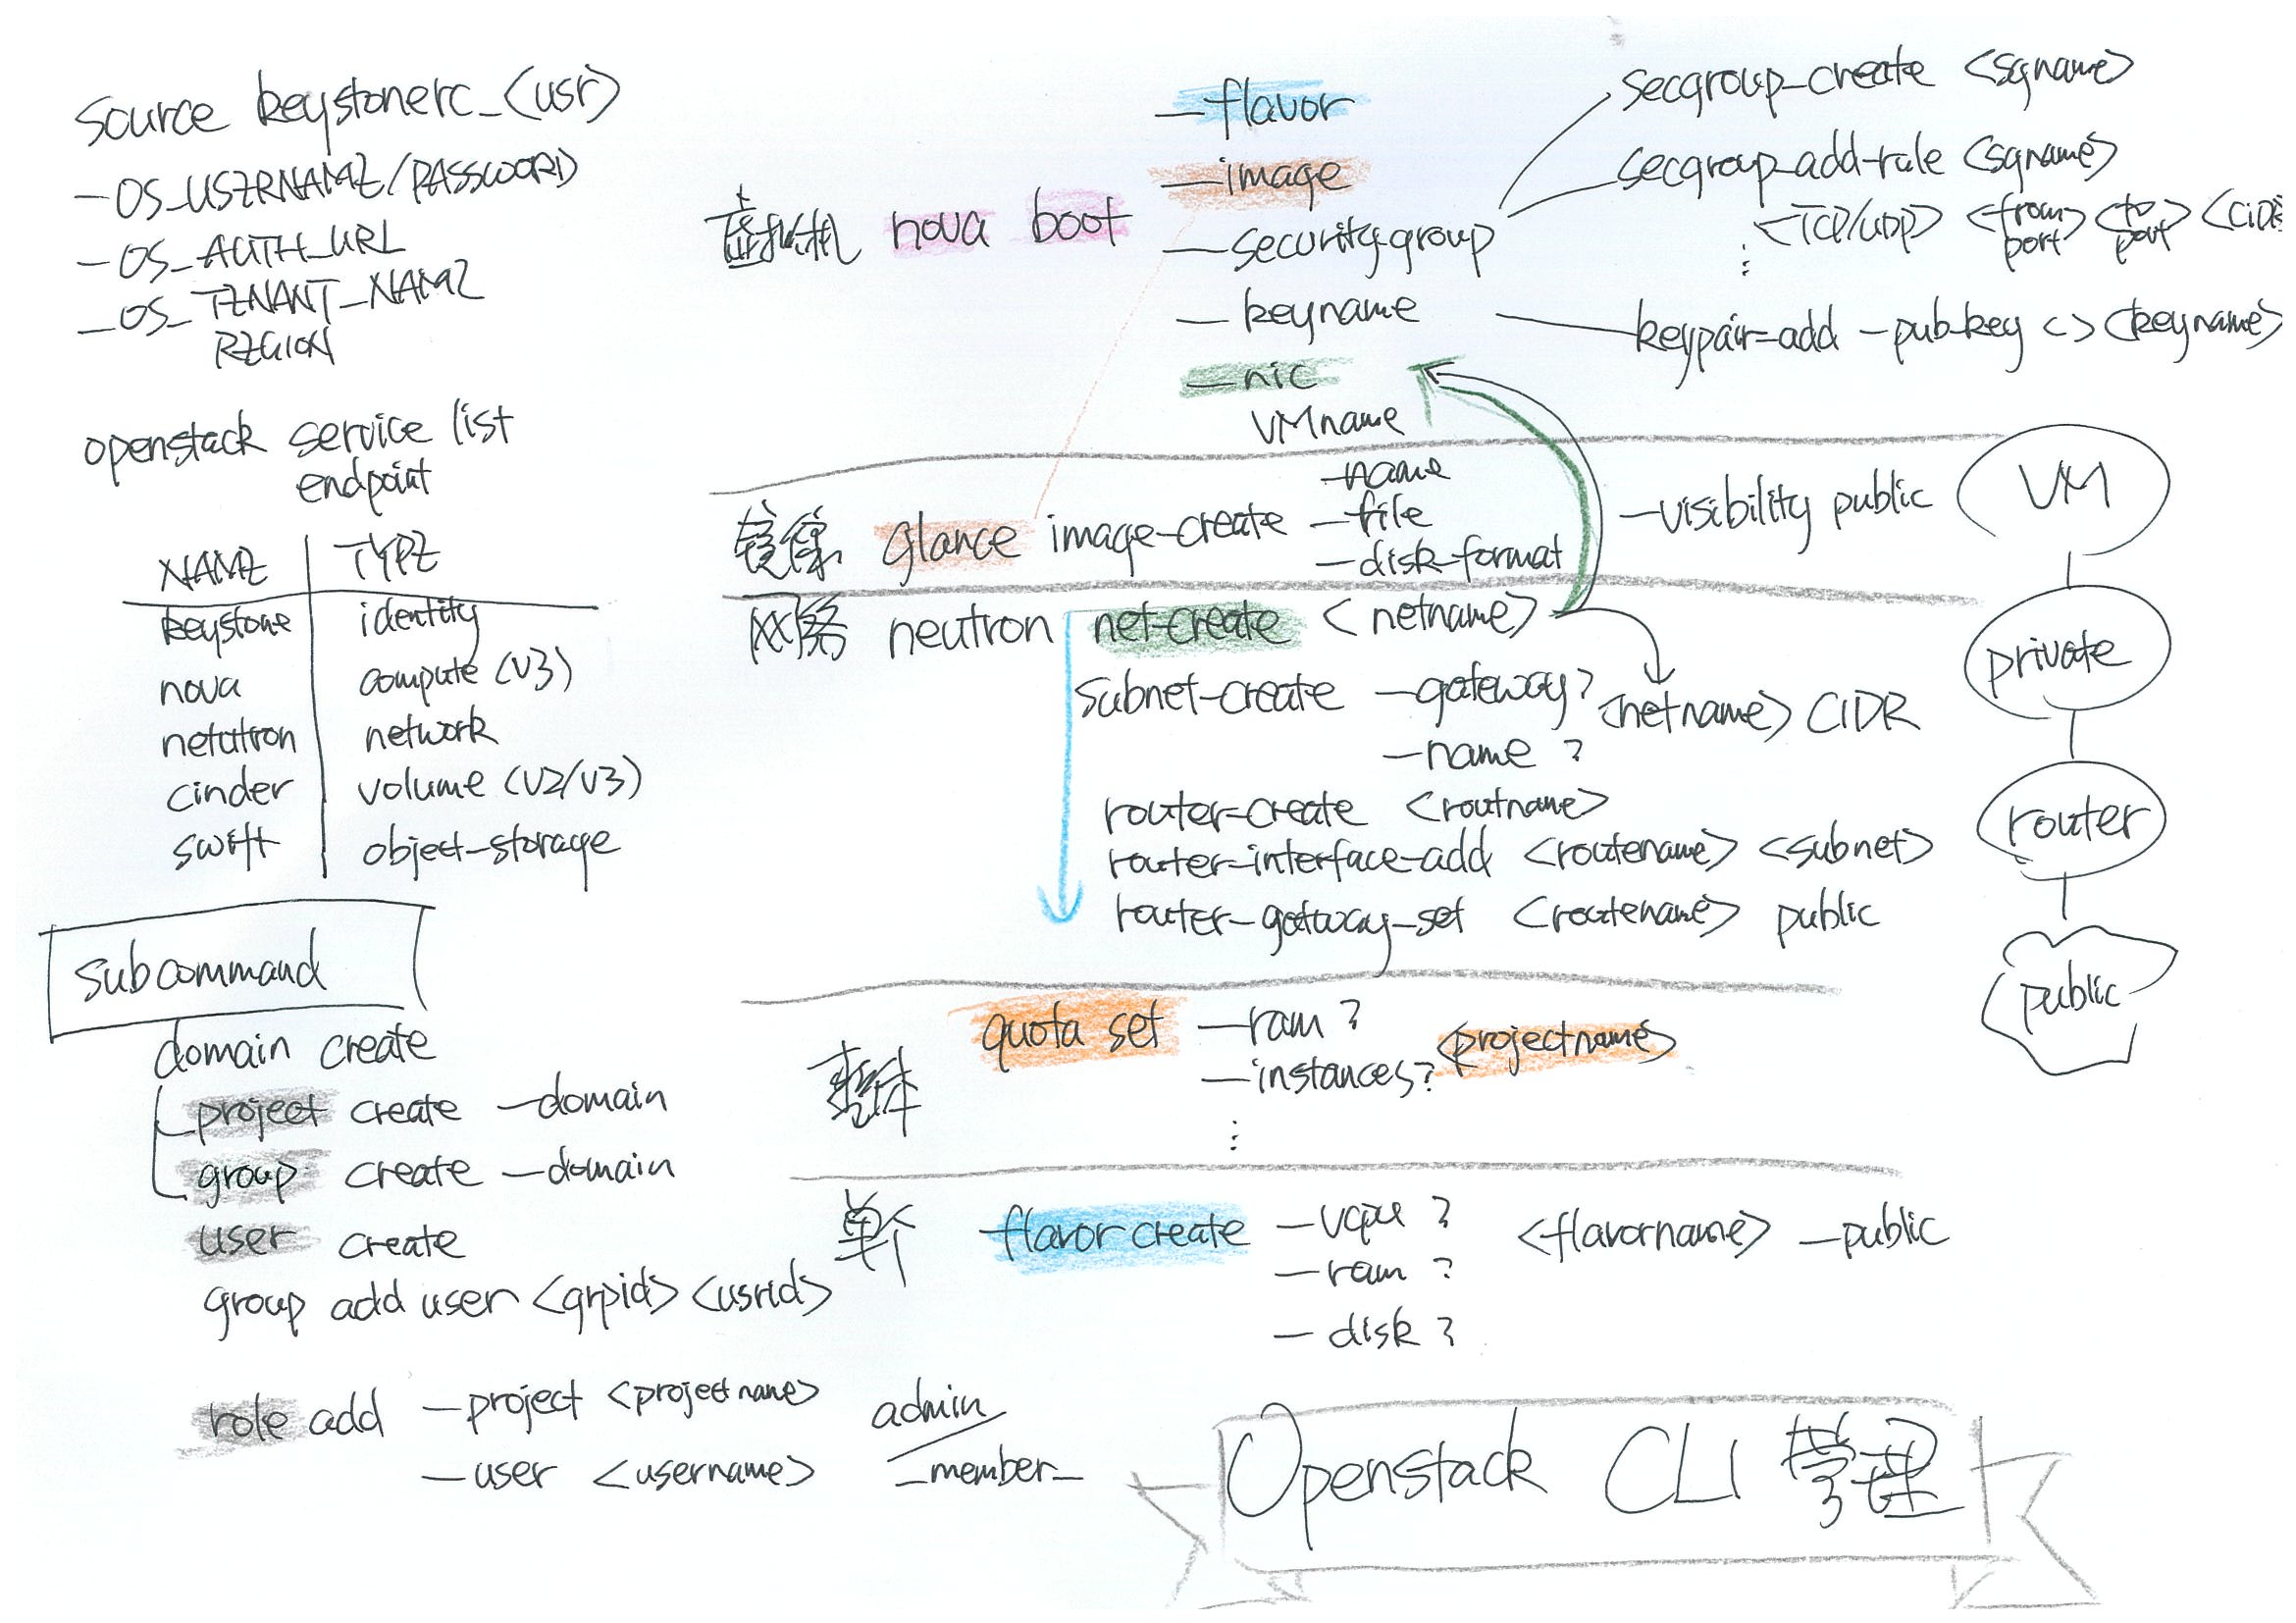 source keystonerc_<usr>
- OS_USERNAME/PASSWORD
- OS_AUTH_URL
- OS_TENANT_NAME
REGION
openstack service list
endpoint
NAME | TYPE
keystone | identity
nova | compute (v3)
netutron | network
cinder | volume (v2/v3)
swift | object-storage
subcommand
domain create
project create -domain
group create -domain
user create
group add user <grpid> <usrid>
role add -project <projectname> admin
-user <username> _member_
虚拟机 nova boot
-flavor
-image
-security-group
-keyname
-nic
VMname
secgroup_create <sgname>
secgroup_add-rule <sgname>
<TCP/UDP> <from port> <to port> <CIDR
⋮
keypair-add -pub-key <> <keyname>
镜像 glance image-create
-name
-file
-disk-format
-visibility public
网络 neutron net-create <netname>
subnet-create -gateway? <netname> CIDR
-name ?
router-create <routname>
router-interface-add <routename> <subnet>
router-gateway-set <routename> public
VM
private
router
public
整体 quota set -ram ? <projectname>
-instances?
⋮
单个 flavor create -vcpu ? <flavorname> -public
-ram ?
- disk ?
Openstack CLI 管理